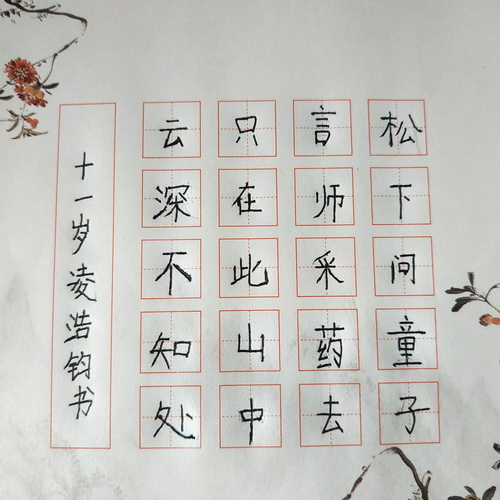 松下问童子
言师采药去
只在此山中
云深不知处
十一岁凌浩钧书